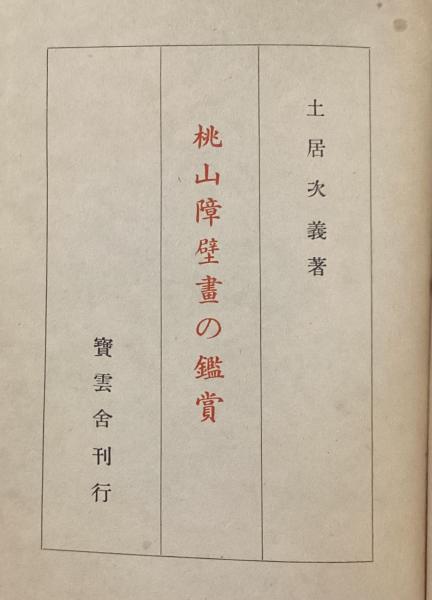 土居次義著
桃山障壁畫の鑑賞
寳雲舍刊行